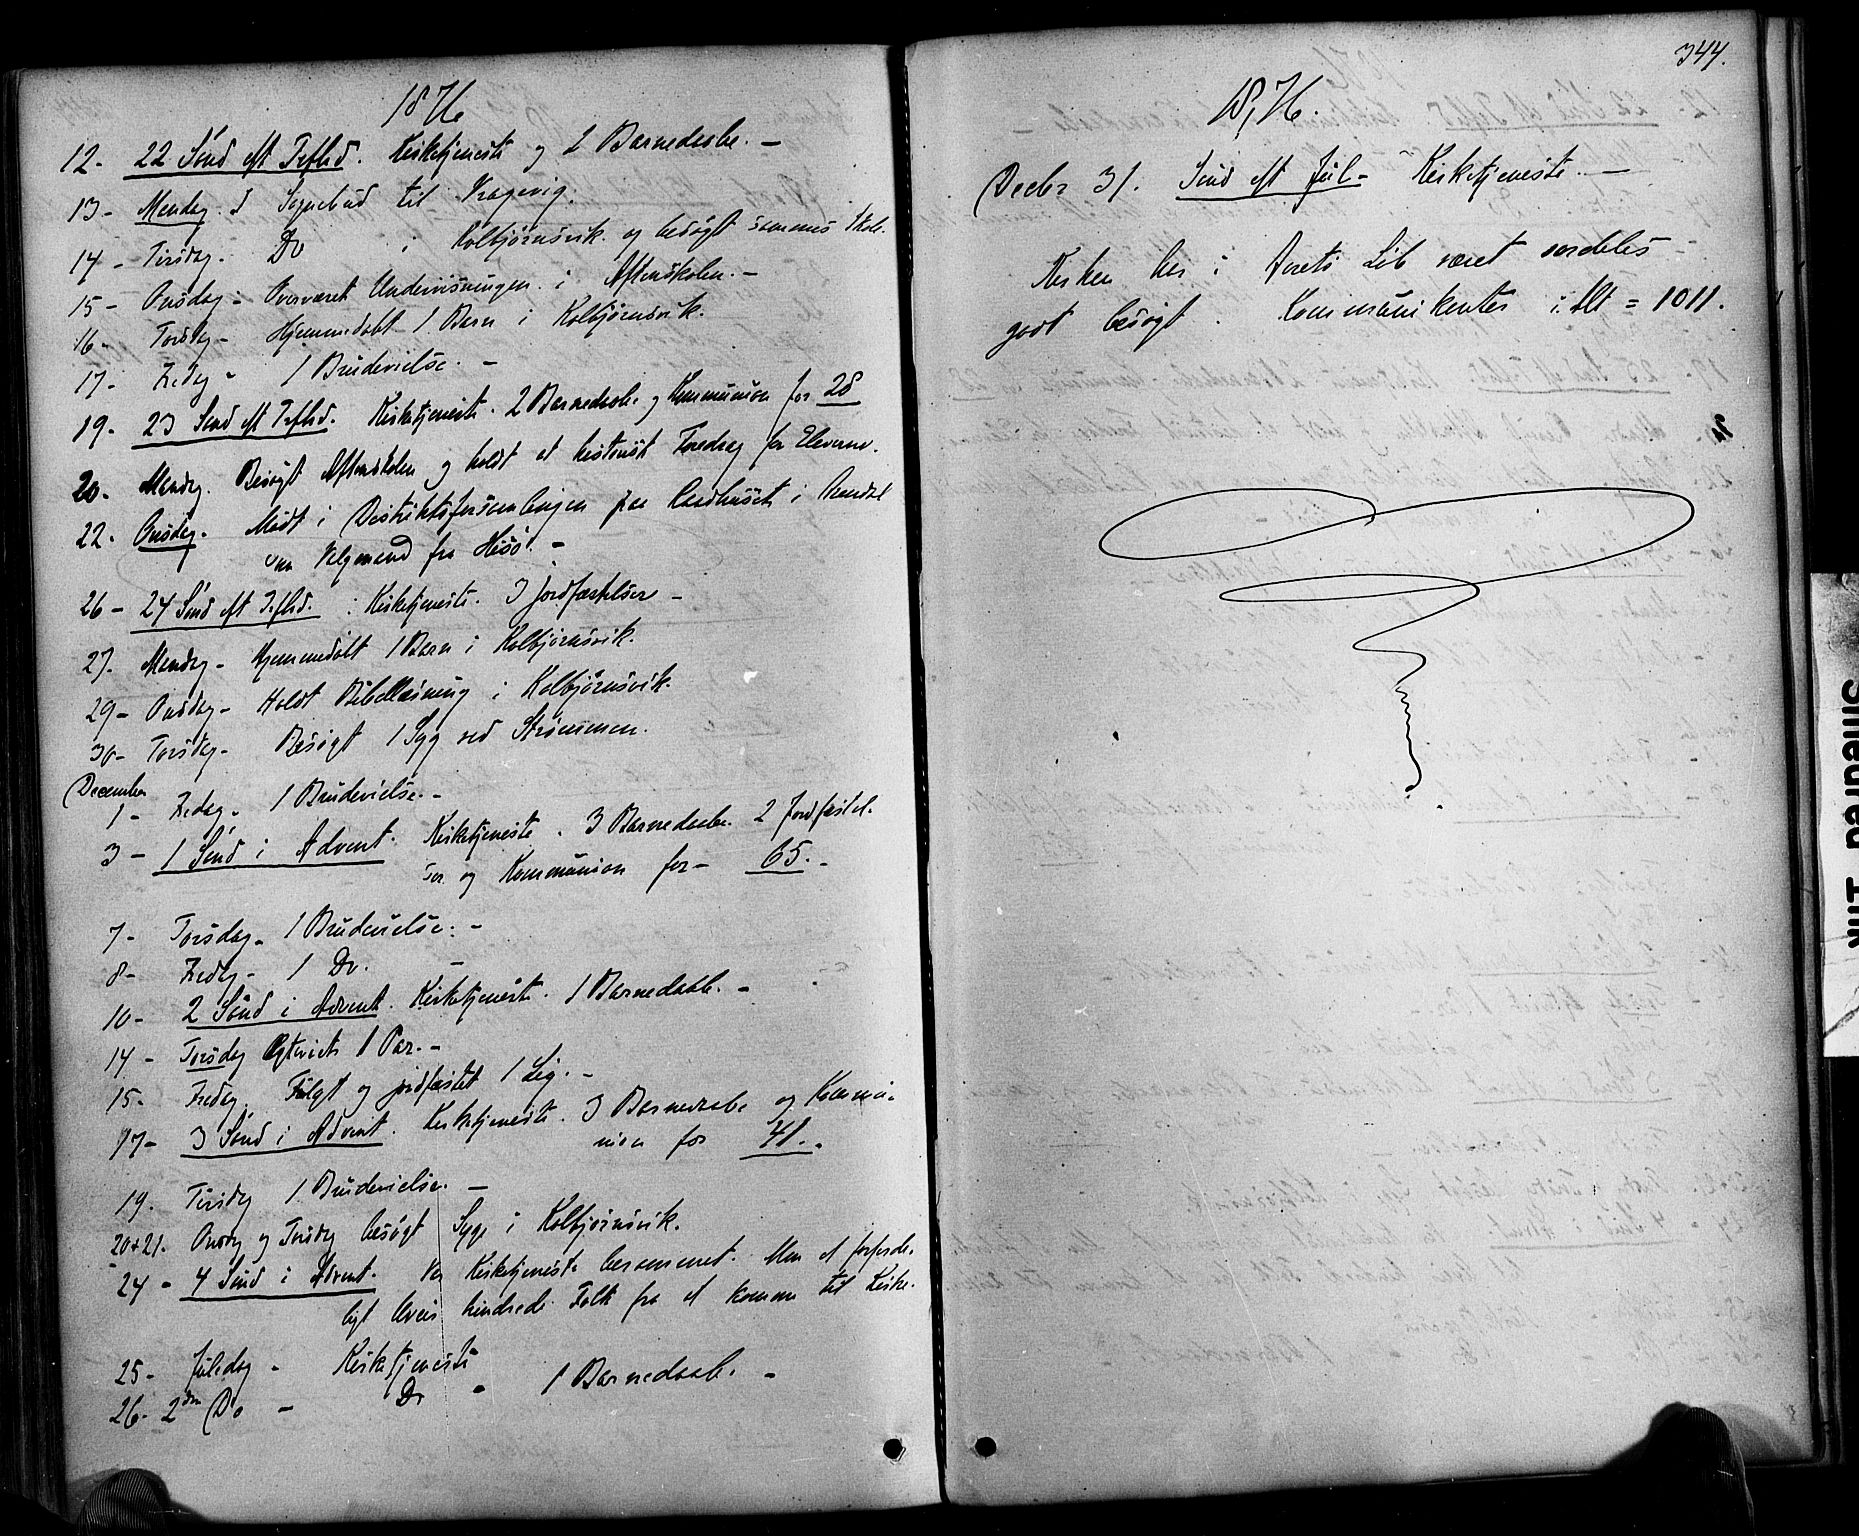 1876
12. 22 Sönd eft Trefhed. Kirketjeneste og 2 Barnedaabe. -
13 - Mandag. I Sognebud til Vragevig.
14 - Tirsdag. Do i Kolbjørnsvik. og besøgt sammes Skole.
15 - Onsdag - Overværet Undervisningen i Aftenskolen. -
16 - Torsdag - Hjemmedøbt 1 Barn i Kolbjørnsvik.
17 - Fredag - 1 Brudevielse. -
19. 23 Sönd eft Trefhd. Kirketjeneste. 2 Barnedaabe og Kommunion for 28
20. Mandag. Besøgt Aftenskolen og holdt et historisk Foredrag for Eleverne.
22. Onsdag. Mødt i Distriktsforsamlingen paa Raadhuset i Arendal
som Valgmand fra Hisö. -
26 - 24 Sönd eft Trefhd. Kirketjeneste. 3 Jordfæstelser -
27. Mandag - Hjemmedöbt 1 Barn i Kolbjørnsvik.
29 - Onsdag - Holdt Bibellæsning i Kolbjørnsvik.
30 - Torsdag - Besøgt 1 Syg ved Strømmen.
December
1 - Fredag - 1 Brudevielse. -
3 - 1 Sönd i Advent. Kirketjeneste. 3 Barnedaabe. 2 Jordfæstel-
ser og Kommunion for - 65. -
7 - Torsdag - 1 Brudevielse. -
8 - Fredag - 1 Do. -
10 - 2 Sönd i Advent. Kirketjeneste. 1 Barnedaab. -
14 - Torsdag Egteviet 1 Par. -
15 - Fredag. Fulgt og jordfæstet 1 Lig. -
17 - 3 Sönd i Advent. Kirketjeneste. 3 Barnedaabe og Kommu-
nion for 41. -
19. Tirsdag 1 Brudevielse. -
20 & 21. Onsdag og Torsdag besøgt Syge i Kolbjørnsvik.
24 - 4 Sönd i Advent. Var Kirketjeneste berammet. Men et forfærde-
ligt Uveir hindrede Folk fra at komme til Kirke.
25 - Juledag - Kirketjeneste
26 - 2den Do - Do - 1 Barnedaab. -
344.
1876.
Decbr 31. Sönd eft Jül - Kirketjeneste. -
Kirken har i Aarets Löb været særdeles
godt besøgt. Kommunikanter i Alt = 1011.
Smedred Tnk